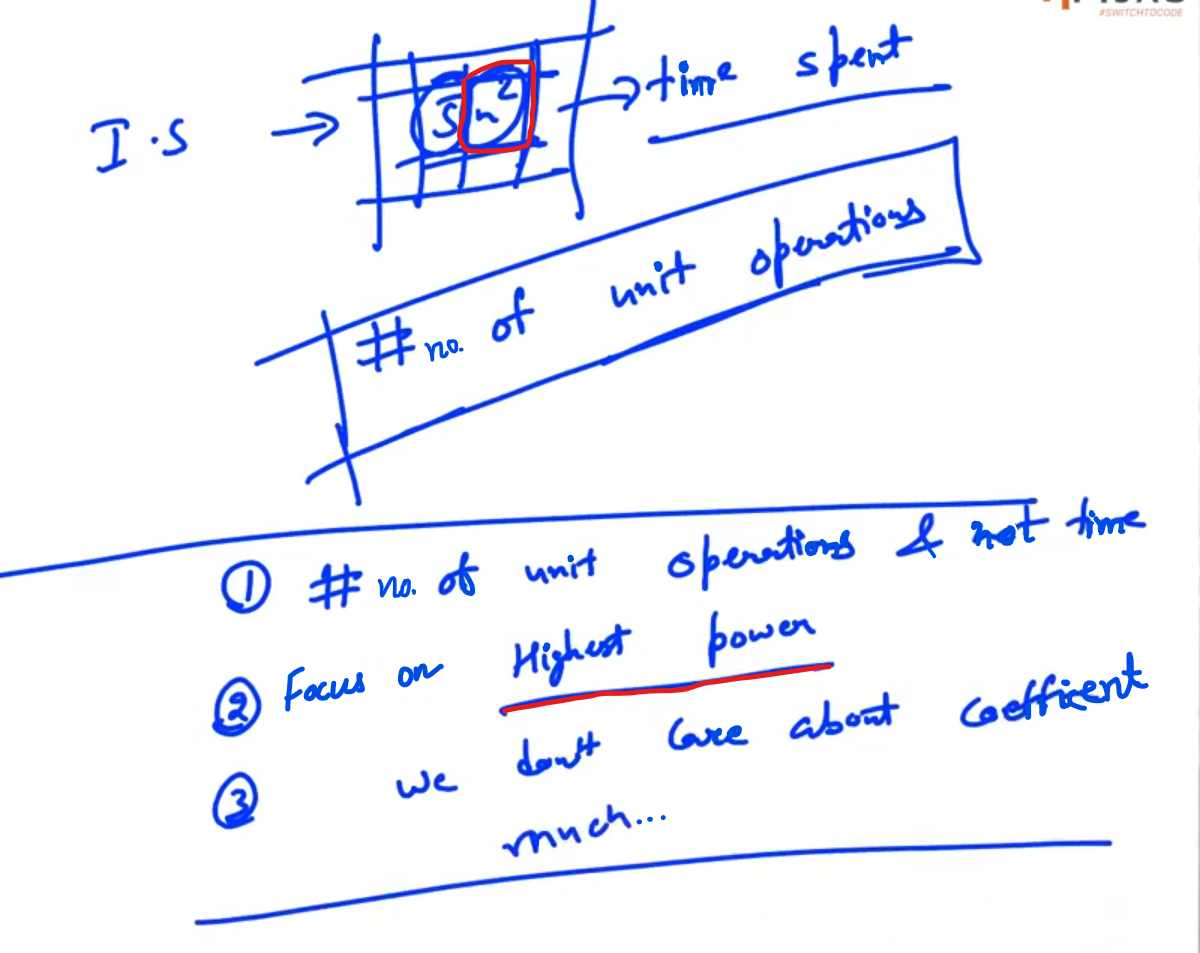 #SWITCHTOCODE
I.S → 5n² → time spent
# no. of unit operations
① # no. of unit operations & not time
② Focus on Highest power
③ we don't care about coefficent
much...